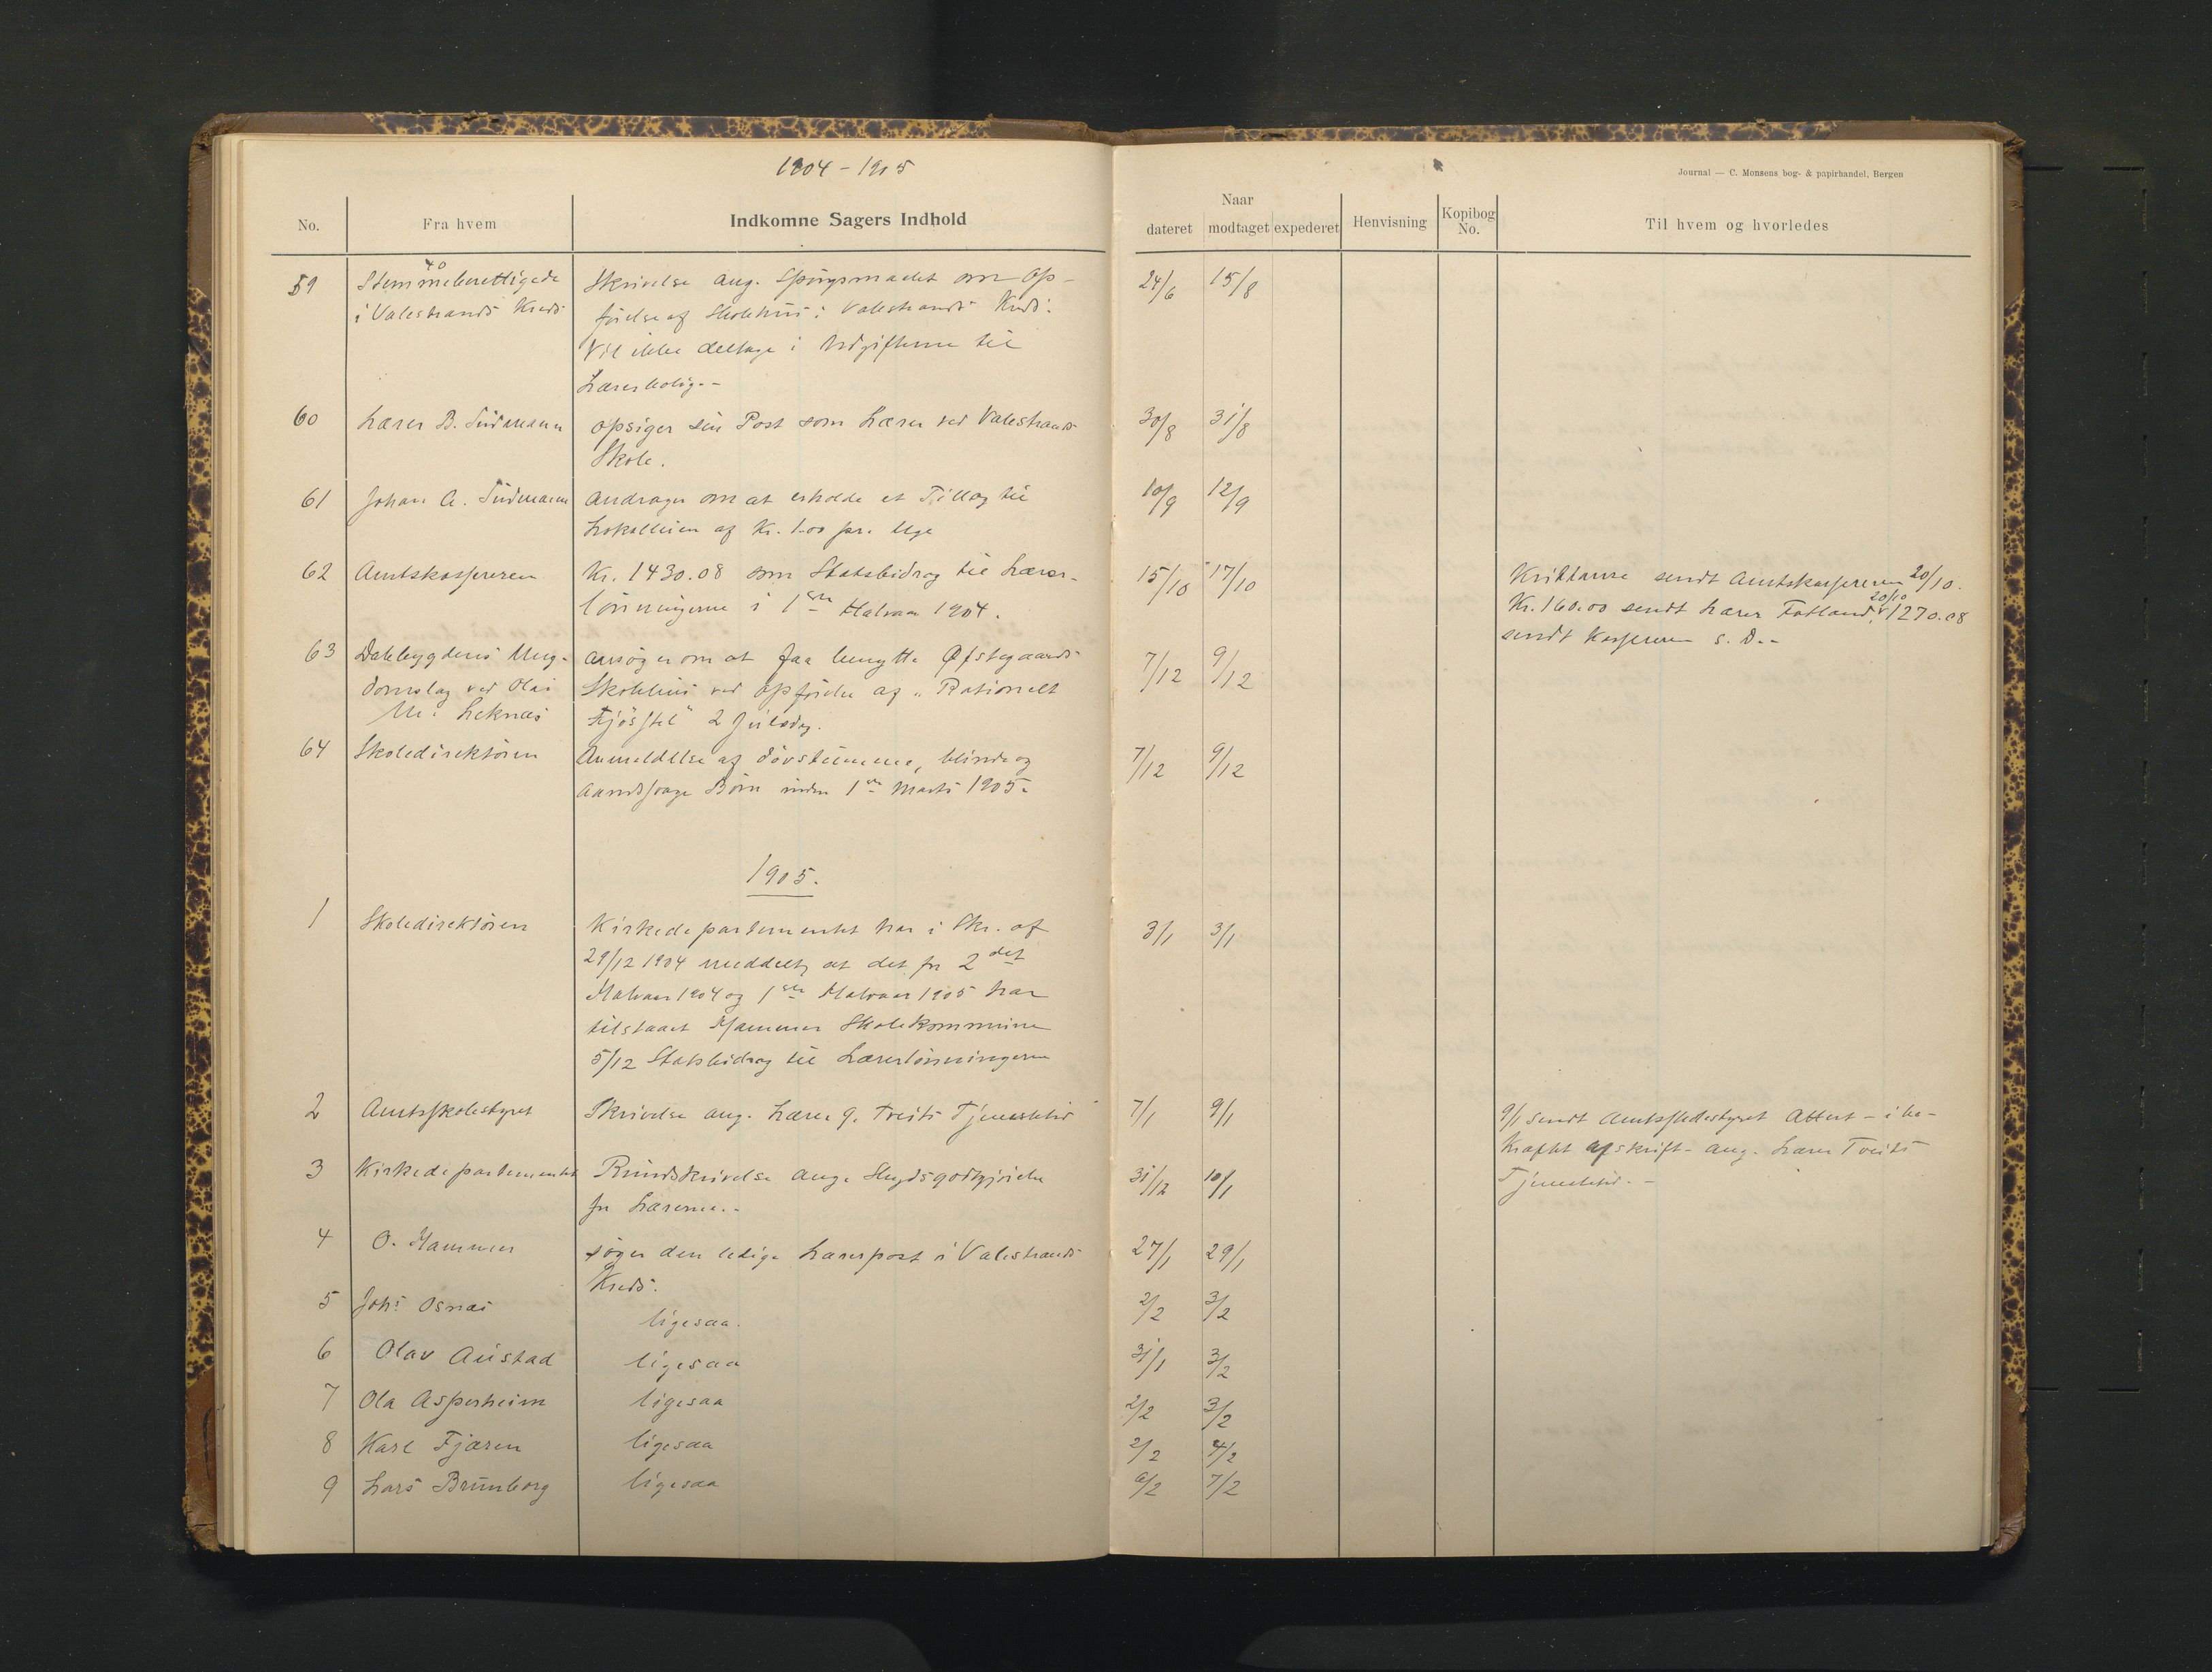 1904 - 1905
Journal — C. Monsens bog- & papirhandel, Bergen
No.
Fra hvem
Indkomne Sagers Indhold
Naar
dateret
modtaget
expederet
Henvisning
Kopibog
No.
Til hvem og hvorledes
59
40
Stemmeberettigede
i Valestrands Kreds
Skrivelse ang. Spørgsmaalet om Op-
førelse af Skolehus i Valestrands Kreds.
Vil ikke deltage i Udgifterne til
Lærerbolig.-
24/6
15/8
60
Lærer B. Sudmann
opsiger sin Post som Lærer ved Valestrands
Skole.
30/8
31/8
61
Johan A. Sudmann
andrager om at erholde et Tillæg til
Lokalleien af Kr. 1.00 pr. Uge
10/9
12/9
62
Amtskassereren
Kr. 1430.08 som Statsbidrag til Lærer-
lønningerne i 1ste Halvaar 1904.
15/10
17/10
Kvittanse sendt Amtskassereren 20/10.
Kr. 160.00 sendt Lærer Fotland 20/10, 1270.08
sendt Kassereren s. D.-
63
Dalebygdens Ung-
domslag ved Olai
M. Leknes
ansøger om at faa benytte Øfstegaards
Skolehus ved Opførelse af "Rationelt
Fjøsstel" 2 Juledag.
7/12
9/12
64
Skoledirektøren
Anmeldelse af døvstumme, blinde og
Aandssvage Børn inden 1ste Marts 1905.
7/12
9/12
1905.
1
Skoledirektøren
Kirkedepartementet har i Skr. af
29/12 1904 meddelt, at det for 2det
Halvaar 1904 og 1ste Halvaar 1905 har
tilstaaet Hammer Skolekommune
5/12 Statsbidrag til Lærerlønningerne
3/1
3/1
2
Amtsskolestyret
Skrivelse ang. Lærer J. Tveits Tjenestetid
7/1
9/1
9/1 sendt Amtsskolestyret Attest - i be-
kræftet afskrift - ang. Lærer Tveits
Tjenestetid. -
3
Kirkedepartementet
Rundskrivelse ang. Skydsgodtgjørelse
for Lærerne.-
31/12
10/1
4
O. Hammer
søger den ledige Lærerpost i Valestrands
Kreds.
27/1
29/1
5
Johs Osnes
ligesaa.
2/2
3/2
6
Olav Austad
ligesaa
31/1
3/2
7
Ola Asperheim
ligesaa
2/2
3/2
8
Karl Fjæren
ligesaa
2/2
4/2
9
Lars Brunborg
ligesaa
6/2
7/2